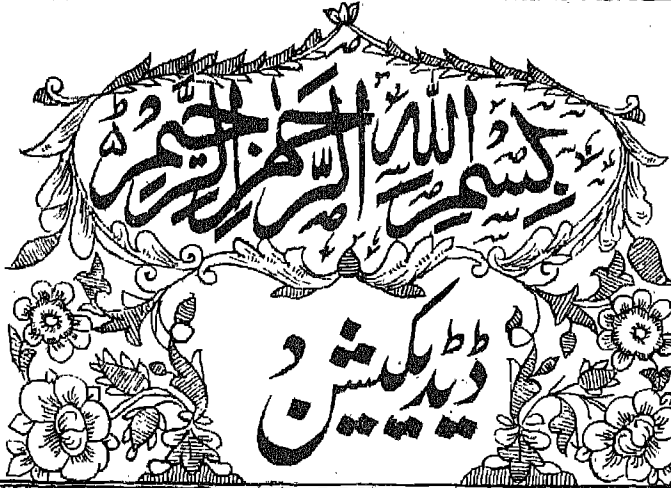 بِسْمِ اللّٰهِ الرَّحْمٰنِ الرَّحِيْمِ
ڈیڈیکیشن